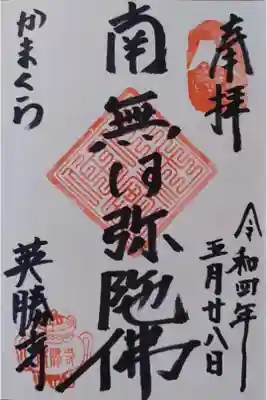 奉拝
令和四年
五月廿八日
南無阿弥陀佛
かまくら
英勝寺